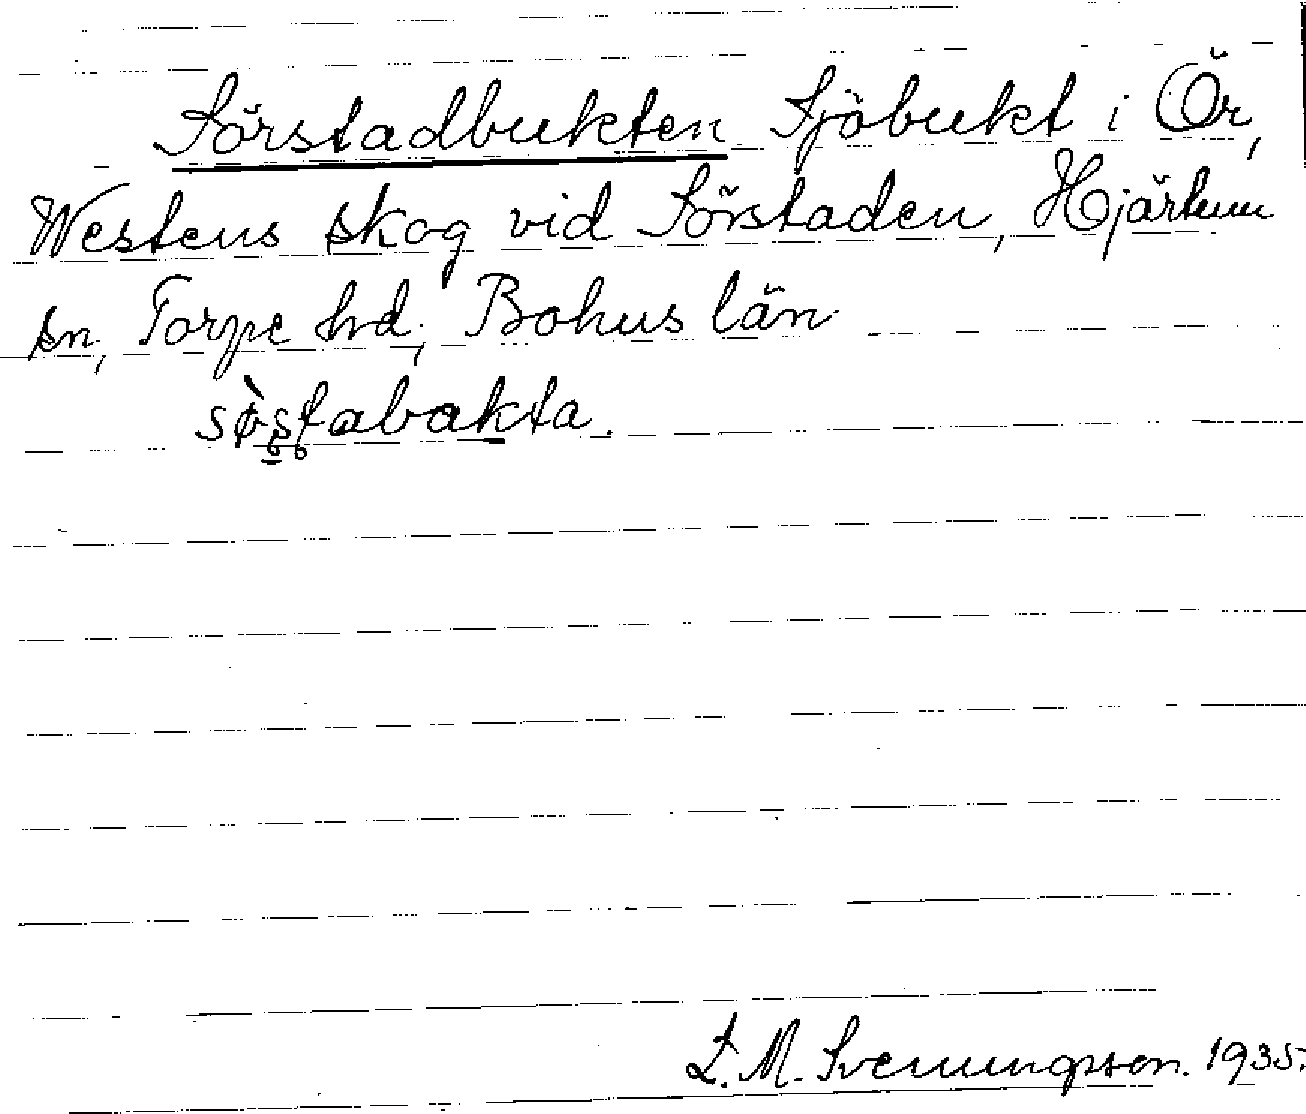 Sörstadbukten Sjöbukt i Ör,
Westens skog vid Sörstaden, Hjärtum
sn, Torpe hd, Bohus län
sø̀stabakta.
L. M. Svenungsson. 1935.